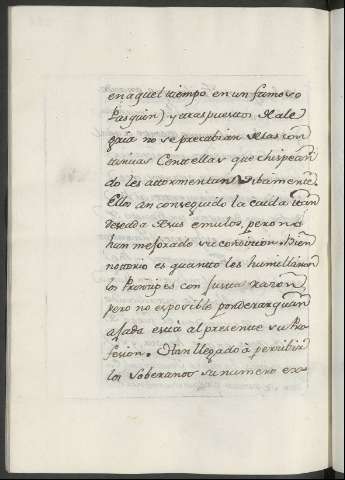 en aquel tiempo en un famoso
Pasquin) y traspuestos de ale
gria no se precabian de las con
tinuas Centellas que chispean
do les atormentan vibamente.
Ellos an conseguido la caida tan
deseada de sus emulos, pero no
han mejorado su condicion. Bien
notorio es quanto les humillaron
los Principes con justa razon,
pero no es posible ponderar quan
ajada está al presente su Pro
fesion. Han llegado à percibir
los Soberanos su numero ex